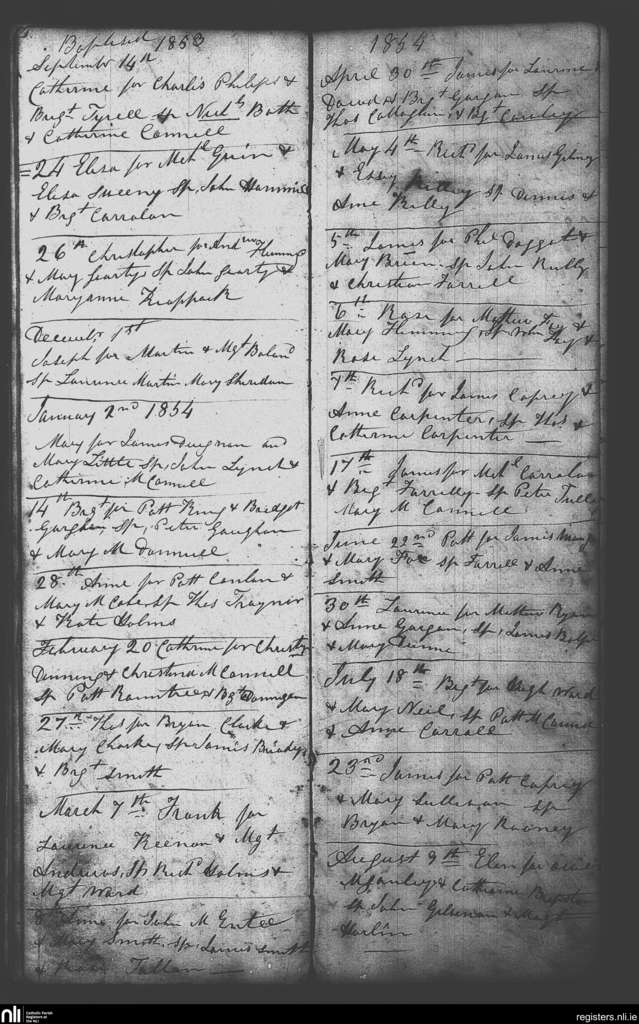 Baptised 1853
September 14th
Catherine for Charles Philips &
Brigt Tyrell Sp Nichs Bath
& Catherine Connell
24 Eliza for Mchl Quin &
Eliza Sweeny Sp, John
& Brgt Carralan
26th Christopher for Andrew Fleming
& Mary Gearty Sp John Gearty &
Maryanne
December 1st
Joseph for Martin & Mgt Boland
Sp Laurence Martin Mary Sheridan
January 2nd 1854
Mary for James Duignan and
Mary Little Sp, John Lynch &
Catherine McConnell
14th Brgt for Patt King & Bridget
Sp, Peter Gaughan
& Mary M
28th Anne for Patt Conlan &
Mary McCabe, Sp Thos Traynor
& Kate Holms
February 20 Cathrine for Christy
Dinning & Christina McConnell
Sp Patt Roundtree & Bgt
27th Thos for Bryan Clarke &
Mary Clarke, Sp James
& Brgt Smith
March 7th Frank for
Laurence Keenon & Mgt
Andrews, Sp Richd Holms &
Mgt Ward
8th Anne for John McEntee
& Mary Smith, Sp, James Smith
& Fallon
1854
April 30th James for Laurence
& Brgt Gargan Sp
Thos Callaghan, & Bgt
May 4th Richd for James
& Essy Sp Dennis &
Anne Reilly
5th James for Phil Dogget &
Mary Brien, Sp John Reilly
& Christian Farrell
6th Rose for Mathew Fay &
Mary Flemming, Sp John Fay &
Rose Lynch
7th Richd for James Caprey &
Anne Carpenter, Sp Thos &
Catherine Carpenter
17th James for Mchl Carralan
& Brgt Farrelly Sp Peter Tully
Mary McConnell
June 22nd Patt for James
& Mary Fox Sp Farrell & Anne
Smith
30th Laurence for Mathew Ryan
& Anne Gargan, Sp, James
& Mary Dunne
July 18th Bgt for Hugh Ward
& Mary Neil, Sp Patt McConnell
& Anne Carroll
23rd James for Patt Caprey
& Mary Sullivan Sp
Bryan & Mary Rooney
August 9th Elen for
& Catherine
Sp John & Margt
Harlin
nli
Catholic Parish
Registers at
The NLI
registers.nli.ie